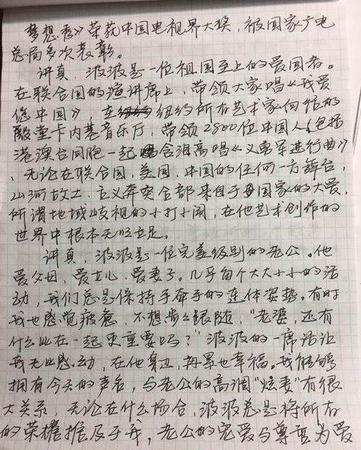 梦想秀》荣获中国电视界大奖，被国家广电
总局多次表彰。
讲真，波波是一位祖国至上的爱国者。
在联合国的演讲席上，带领大家唱《我爱
您中国》，在纽约所有艺术家向往的
殿堂卡内基音乐厅，带领2800位中国人（包括
港澳台同胞一起含泪高唱《义勇军进行曲》
，无论在联合国，美国，中国的任何一方舞台，
山河故土，主义奔突全部来自于母国家的大爱，
所谓地域歧视的小打小闹，在他艺术创作的
世界中根本无以立足。
讲真，波波是一位完美级别的老公。他
爱父母，爱女儿，爱妻子。几乎每个大大小小的活
动，我们总是保持手牵手的连体姿势。有时
我也感觉疲惫，不想步步跟随，“老婆，还有
什么比在一起更重要吗？”波波的一席话让
我无比感动，在他身边，再累也幸福。我能够
拥有今天的声名，与老公的高调“炫妻”有很
大关系，无论在什么场合，波波总是将所有
的荣耀推及于我，老公的宠爱与尊重为爱